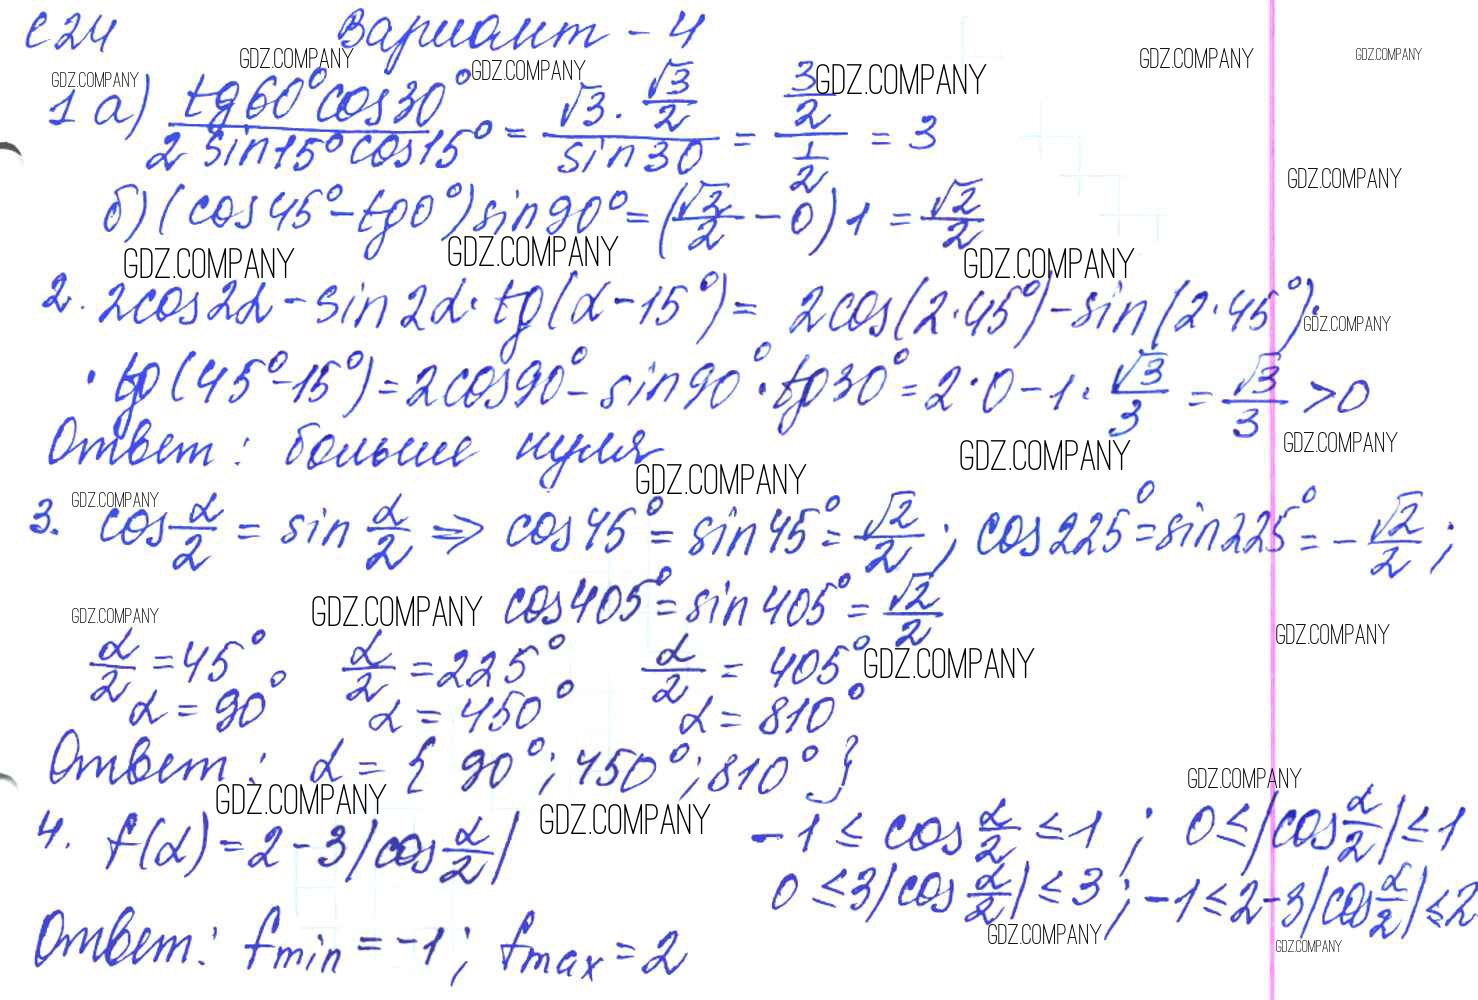 С24 Вариант - 4
GDZ.COMPANY GDZ.COMPANY GDZ.COMPANY GDZ.COMPANY GDZ.COMPANY GDZ.COMPANY
1 а) tg60°cos30° / 2 sin15°cos15° = √3 · √3/2 / sin30 = 3/2 / 1/2 = 3
GDZ.COMPANY
б) (cos45° - tg0°) sin90° = (√2/2 - 0) 1 = √2/2
GDZ.COMPANY GDZ.COMPANY GDZ.COMPANY
2. 2cos2α - sin2α · tg(α - 15°) = 2cos(2·45°) - sin(2·45°) ·
GDZ.COMPANY
· tg(45° - 15°) = 2cos90° - sin90° · tg30° = 2·0 - 1 · √3/3 = √3/3 > 0
Ответ: больше нуля
GDZ.COMPANY GDZ.COMPANY GDZ.COMPANY
GDZ.COMPANY
3. cos α/2 = sin α/2 ⇒ cos45° = sin45° = √2/2 ; cos225° = sin225° = - √2/2 ;
GDZ.COMPANY GDZ.COMPANY cos405° = sin405° = √2/2
GDZ.COMPANY
α/2 = 45° α/2 = 225° α/2 = 405°
GDZ.COMPANY
α = 90° α = 450° α = 810°
Ответ: α = { 90°; 450°; 810° }
GDZ.COMPANY GDZ.COMPANY GDZ.COMPANY
4. f(α) = 2 - 3|cos α/2| -1 ≤ cos α/2 ≤ 1 ; 0 ≤ |cos α/2| ≤ 1
0 ≤ 3|cos α/2| ≤ 3 ; -1 ≤ 2 - 3|cos α/2| ≤ 2
GDZ.COMPANY GDZ.COMPANY
Ответ: fmin = -1; fmax = 2